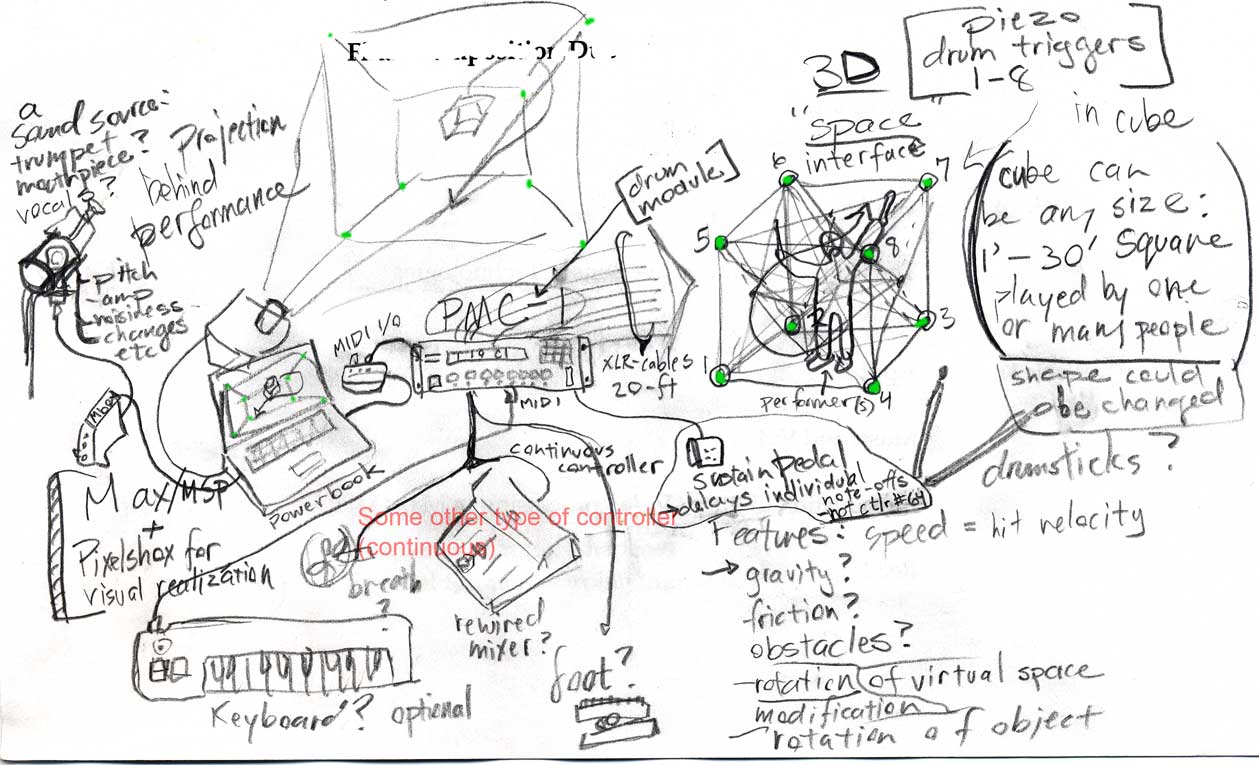 piezo
drum triggers
1-8
in cube
3D
"space"
interface
a
sound source:
trumpet
mouthpiece?
vocal?
Projection
behind
performance
pitch
-amp
-noisiness
changes
etc
drum
module
MIDI I/O
XLR-cables
20-ft
MIDI
5
6
7
8
1
2
3
4
performer(s)
cube can
be any size:
1'-30' square
played by one
or many people
shape could
be changed
drumsticks?
Mbox
Max/MSP
+
Pixelshox for
visual realization
powerbook
continuous
controller
Some other type of controller
(continuous)
breath
?
rewired
mixer?
foot?
Keyboard? optional
sustain pedal
→delays individual
note-offs
-not ctlr #64
Features: speed = hit velocity
→ gravity?
friction?
obstacles?
-rotation of virtual space
modification
-rotation of object